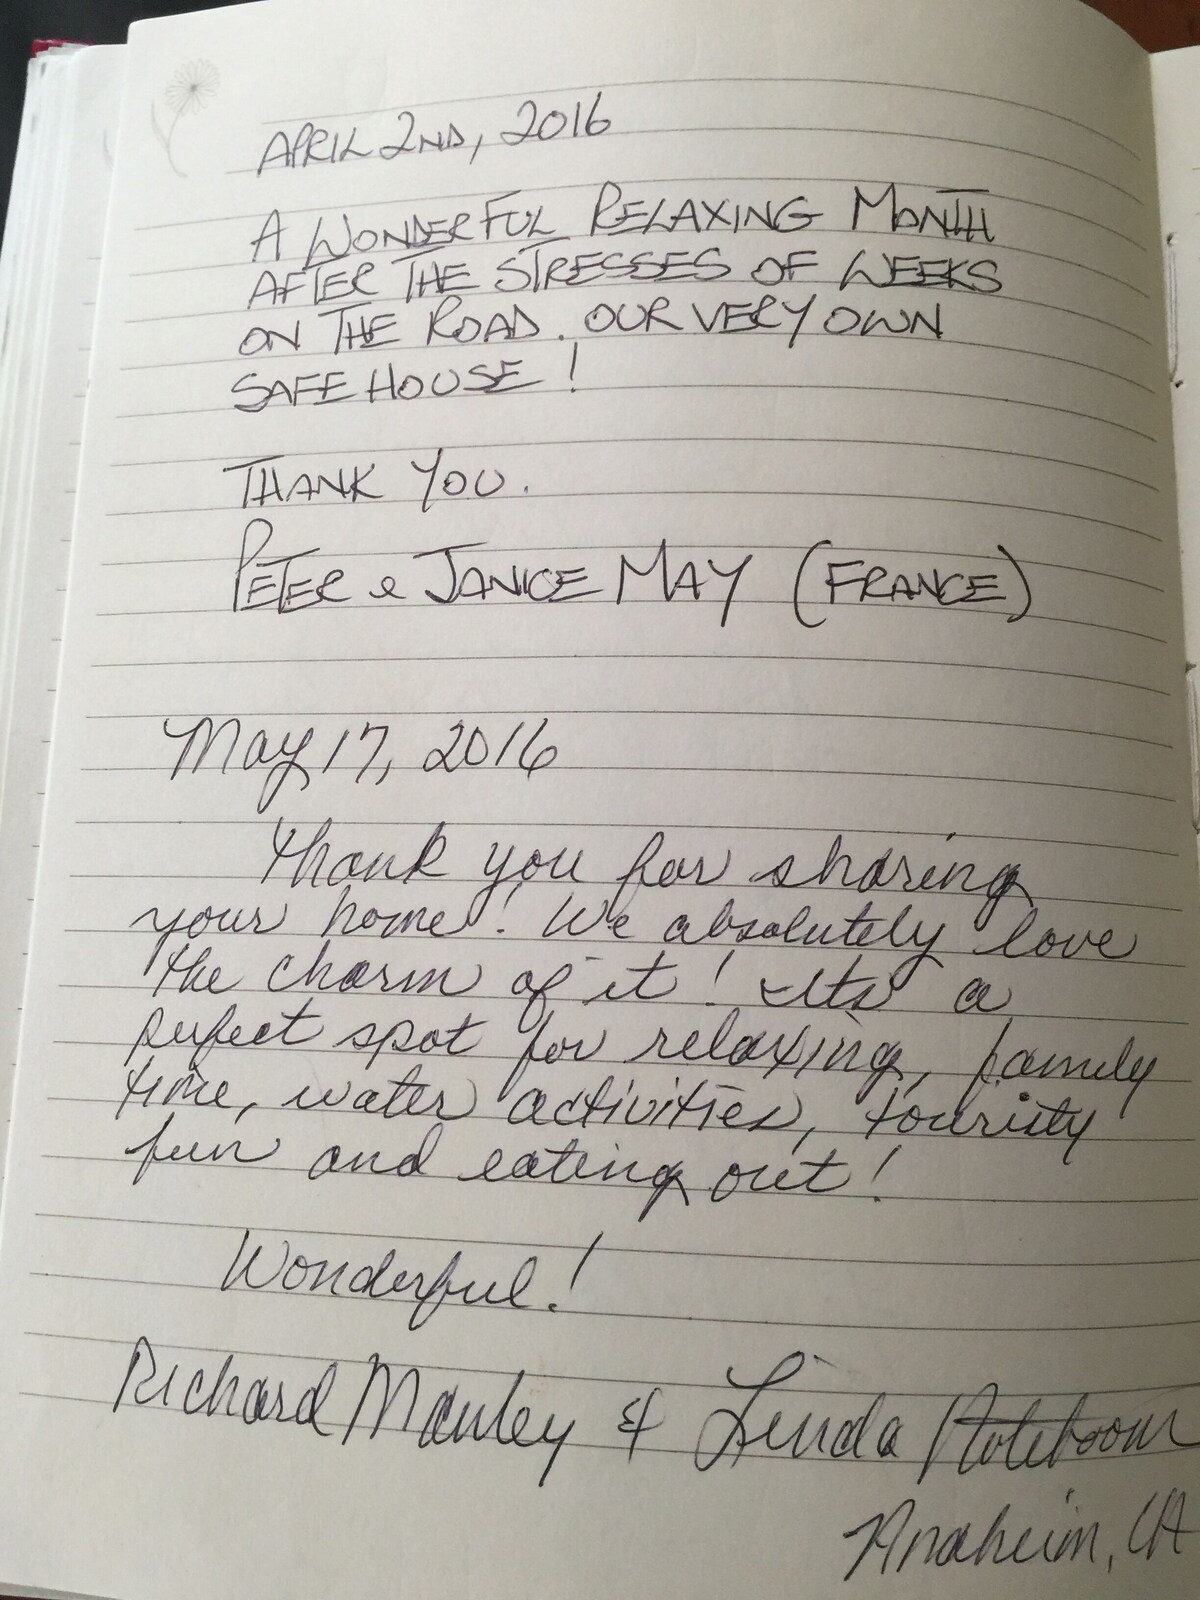 APRIL 2ND, 2016
A WONDERFUL RELAXING MONTH
AFTER THE STRESSES OF WEEKS
ON THE ROAD. OUR VERY OWN
SAFE HOUSE!
THANK YOU.
PETER & JANICE MAY (FRANCE)
May 17, 2016
Thank you for sharing
your home! We absolutely love
the charm of it! Its a
perfect spot for relaxing, family
time, water activities, touristy
fun and eating out!
Wonderful!
Richard Manley & Linda Noteboom
Anaheim, CA